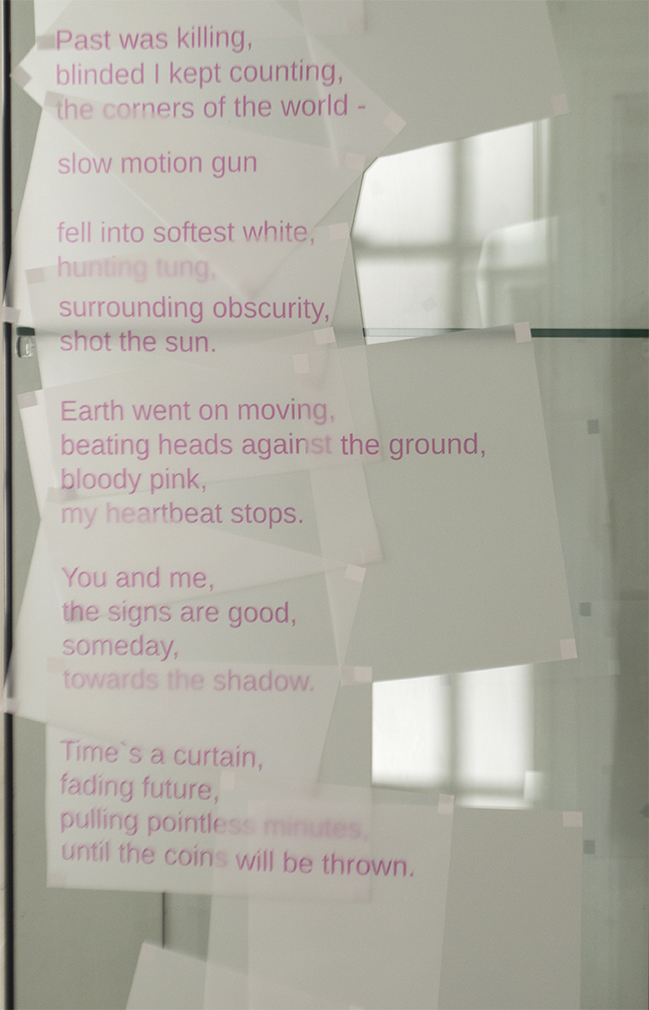 Past was killing,
blinded I kept counting,
the corners of the world -
slow motion gun
fell into softest white,
hunting tung,
surrounding obscurity,
shot the sun.
Earth went on moving,
beating heads against the ground,
bloody pink,
my heartbeat stops.
You and me,
the signs are good,
someday,
towards the shadow.
Time`s a curtain,
fading future,
pulling pointless minutes,
until the coins will be thrown.